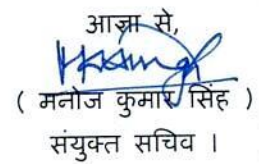 आज्ञा से,
( मनोज कुमार सिंह )
संयुक्त सचिव ।